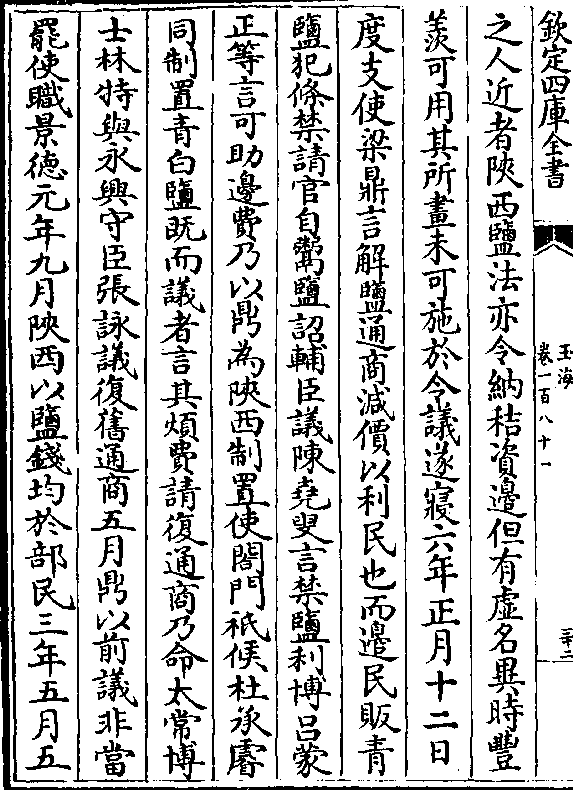 欽定四庫全書
玉海
卷一百八十一
三十二
之人近者陜西鹽法亦令納秸資邉但有虚名異時豐
羡可用其所畫未可施於今議遂寢六年正月十二日
度支使梁鼎言解鹽通商減價以利民也而邉民販青
鹽犯條禁請官自鬻鹽詔輔臣議陳堯叟言禁鹽利博吕蒙
正等言可助邊費乃以鼎為陜西制置使閤門祇候杜承睿
同制置青白鹽既而議者言其煩費請復通商乃命太常博
士林特與永興守臣張詠議復舊通商五月鼎以前議非當
罷使職景德元年九月陜西以鹽錢均於部民三年五月五